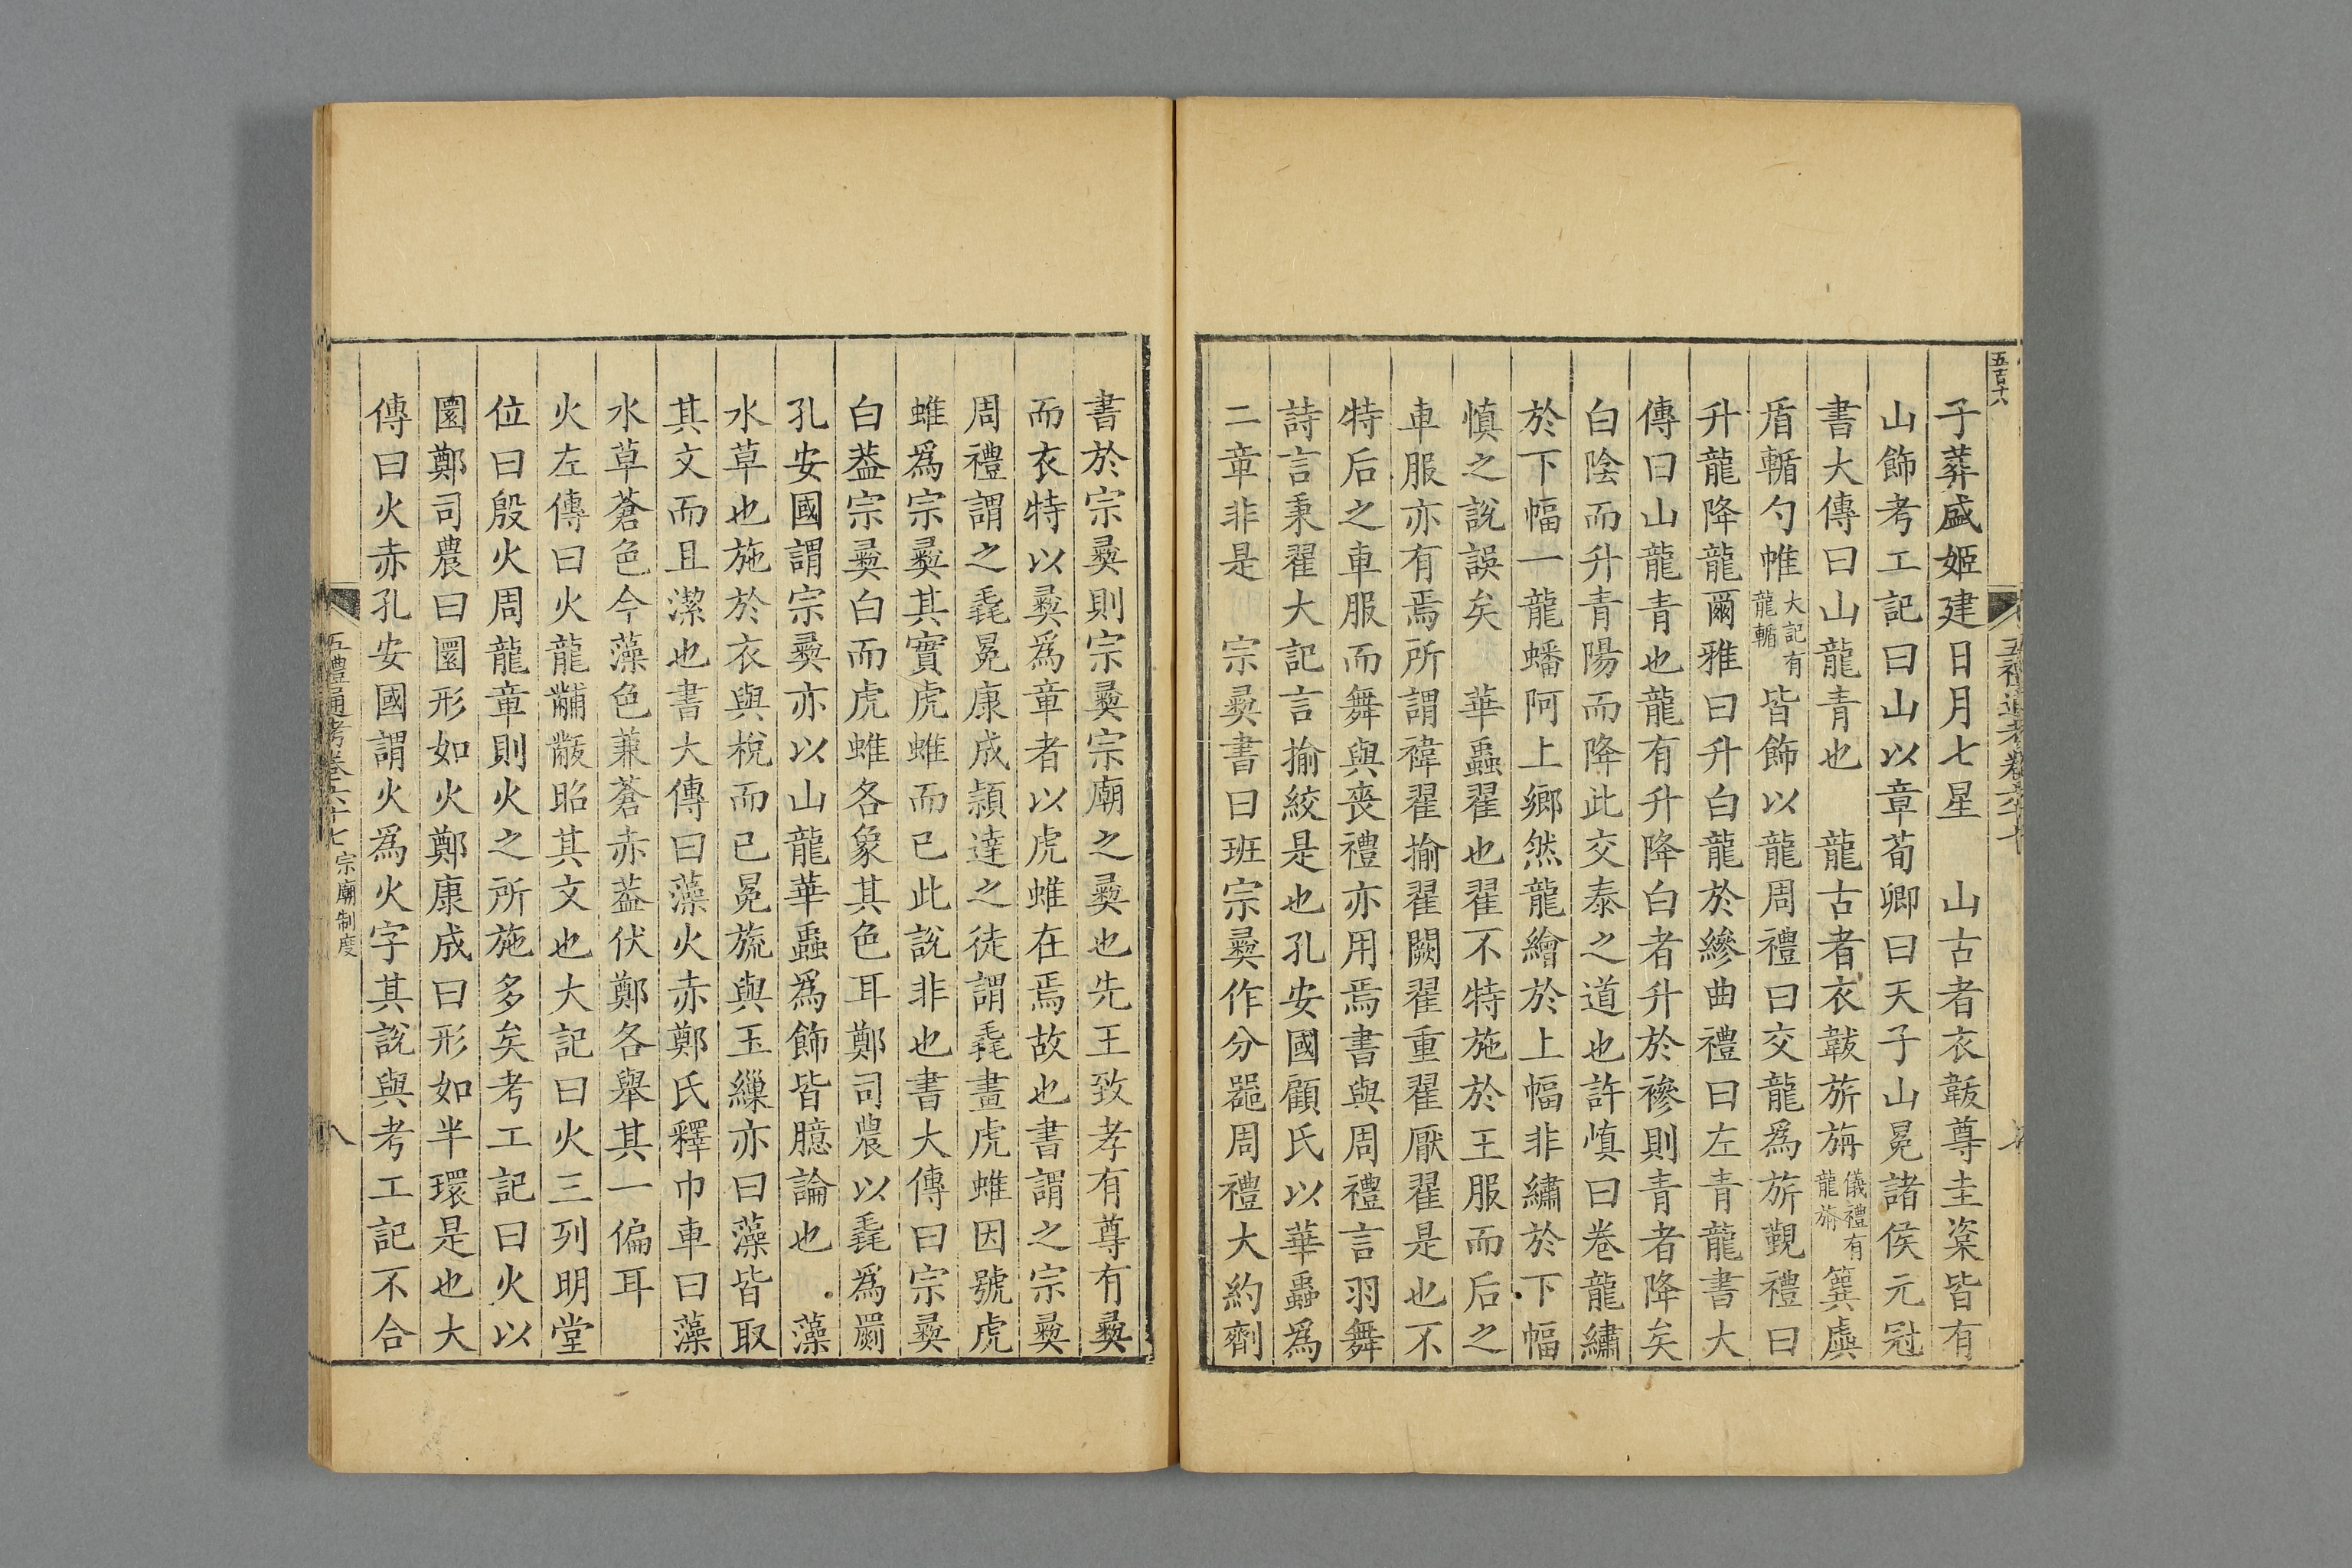 五百十八
五禮通考卷六十七
子葬盛姬建日月七星　山古者衣韍尊圭楶皆有
山飾考工記曰山以章荀卿曰天子山冕諸侯元冠
書大傳曰山龍青也　龍古者衣韍旂旃儀禮有龍旃簨虡
盾輴勺帷大記有龍輴皆飾以龍周禮曰交龍爲旂覲禮曰
升龍降龍爾雅曰升白龍於縿曲禮曰左青龍書大
傳曰山龍青也龍有升降白者升於襂則青者降矣
白陰而升青陽而降此交泰之道也許慎曰卷龍繡
於下幅一龍蟠阿上鄉然龍繪於上幅非繡於下幅
慎之說誤矣　華蟲翟也翟不特施於王服而后之
車服亦有焉所謂褘翟揄翟闕翟重翟厭翟是也不
特后之車服而舞與喪禮亦用焉書與周禮言羽舞
詩言秉翟大記言揄絞是也孔安國顧氏以華蟲爲
二章非是　宗彝書曰班宗彝作分器周禮大約劑
書於宗彝則宗彝宗廟之彝也先王致孝有尊有彝
而衣特以彝爲章者以虎蜼在焉故也書謂之宗彝
周禮謂之毳冕康成頴達之徒謂毳畫虎蜼因號虎
蜼爲宗彝其實虎蜼而已此說非也書大傳曰宗彝
白葢宗彝白而虎蜼各象其色耳鄭司農以毳爲罽
孔安國謂宗彝亦以山龍華蟲爲飾皆臆論也　藻
水草也施於衣與梲而已冕旒與玉繅亦曰藻皆取
其文而且潔也書大傳曰藻火赤鄭氏釋巾車曰藻
水草蒼色今藻色蒹蒼赤葢伏鄭各舉其一偏耳
火左傳曰火龍黼黻昭其文也大記曰火三列明堂
位曰殷火周龍章則火之所施多矣考工記曰火以
圜鄭司農曰圜形如火鄭康成曰形如半環是也大
傳曰火赤孔安國謂火爲火字其說與考工記不合
五禮通考卷六十七　宗廟制度
八